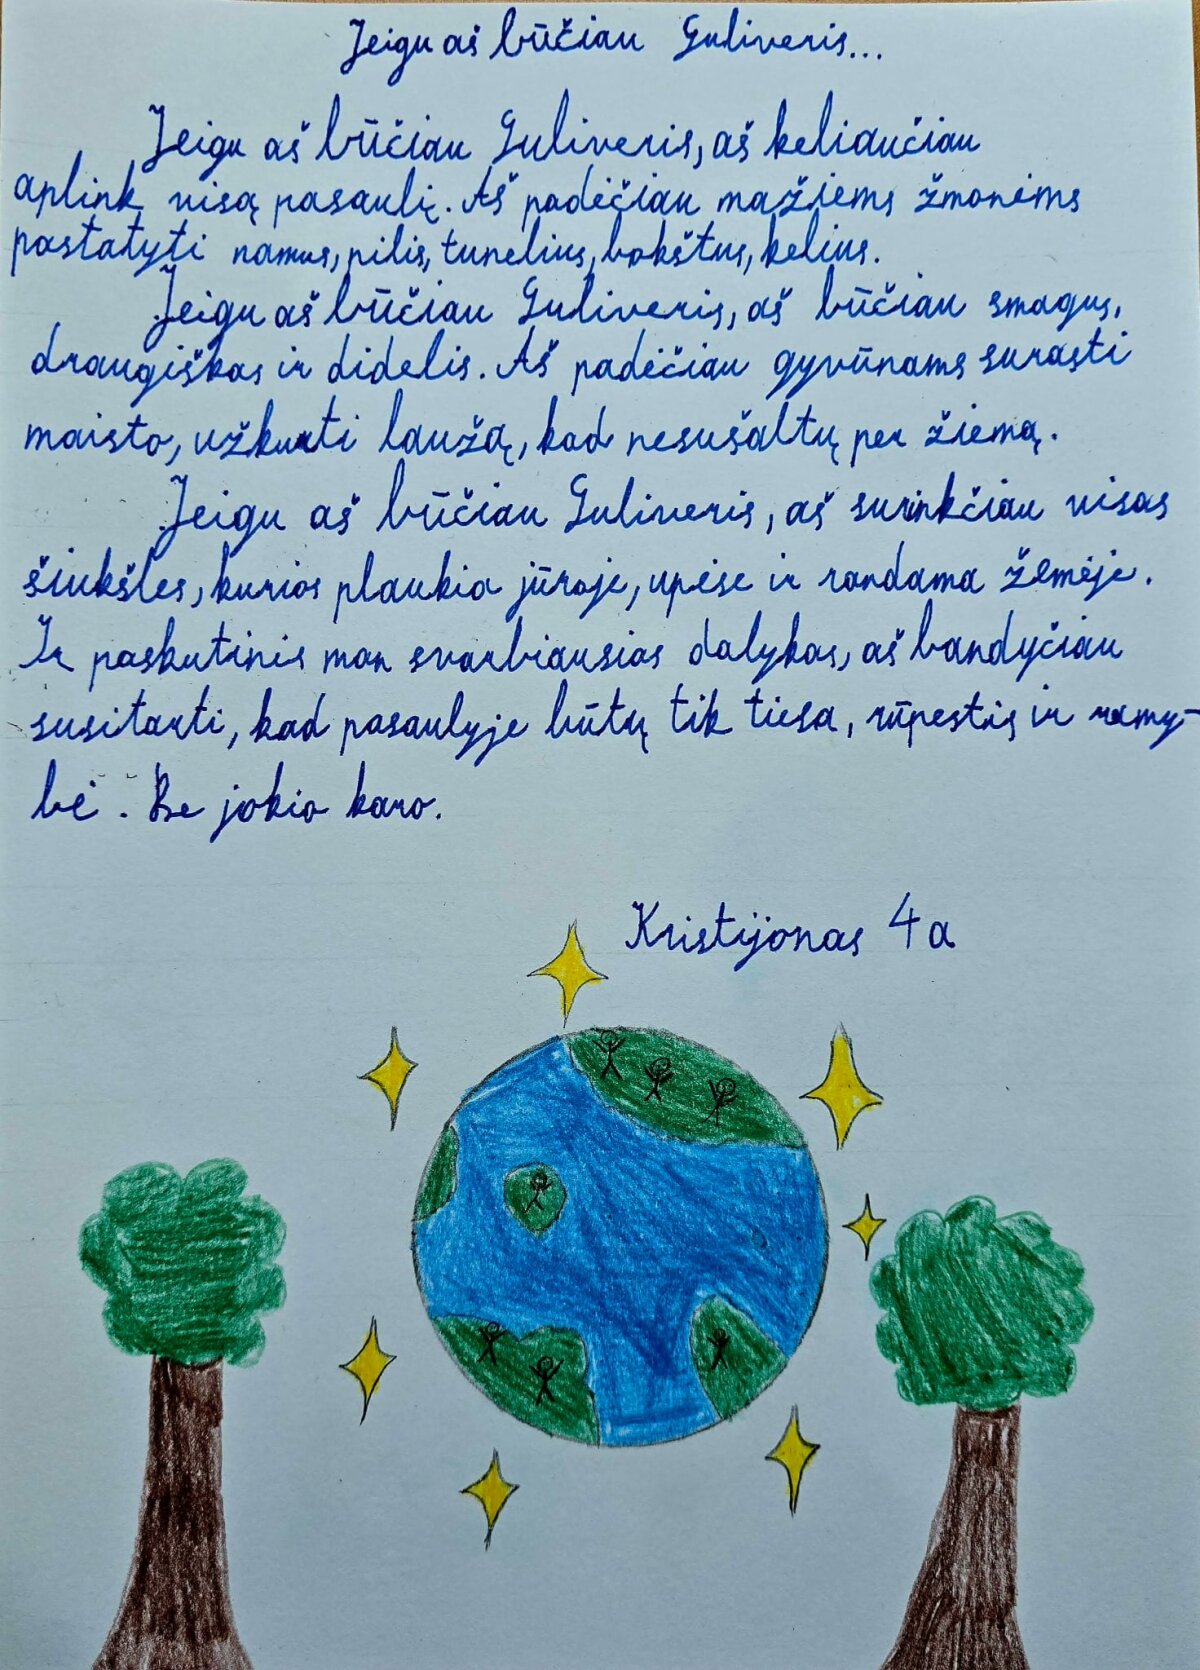 Jeigu aš būčiau Guliveris...
Jeigu aš būčiau Guliveris, aš keliaučiau
aplink visą pasaulį. Aš padėčiau mažiems žmonėms
pastatyti namus, pilis, tunelius, bokštus, kelius.
Jeigu aš būčiau Guliveris, aš būčiau smagus,
draugiškas ir didelis. Aš padėčiau gyvūnams surasti
maisto, užkurti laužą, kad nesušaltų per žiemą.
Jeigu aš būčiau Guliveris, aš surinkčiau visas
šiukšles, kurios plaukia jūroje, upėse ir randama žemėje.
Ir paskutinis man svarbiausias dalykas, aš bandyčiau
susitarti, kad pasaulyje būtų tik tiesa, rūpestis ir ramy-
bė. Be jokio karo.
Kristijonas 4a